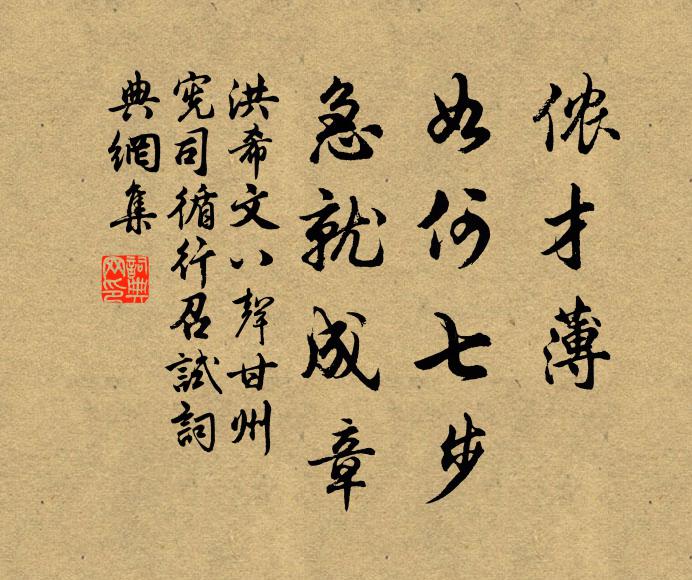 侬才薄
如何七步
急就成章
洪希文八聲甘州
宪司循行召試詞
典網集
詞典网印